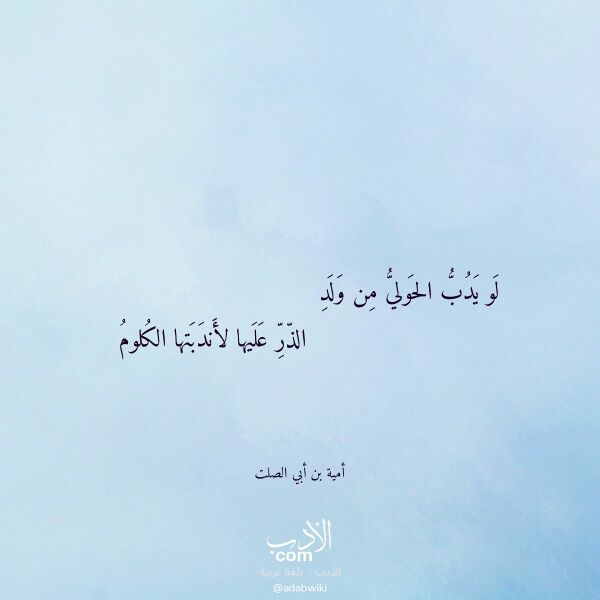 لَو يَدُبُّ الحَوليُّ مِن وَلَدِ
الذّرِّ عَلَيها لأَندَبَتها الكُلومُ
أمية بن أبي الصلت
الأدب
com
الأدب .. بلغة عربية
@adabwiki